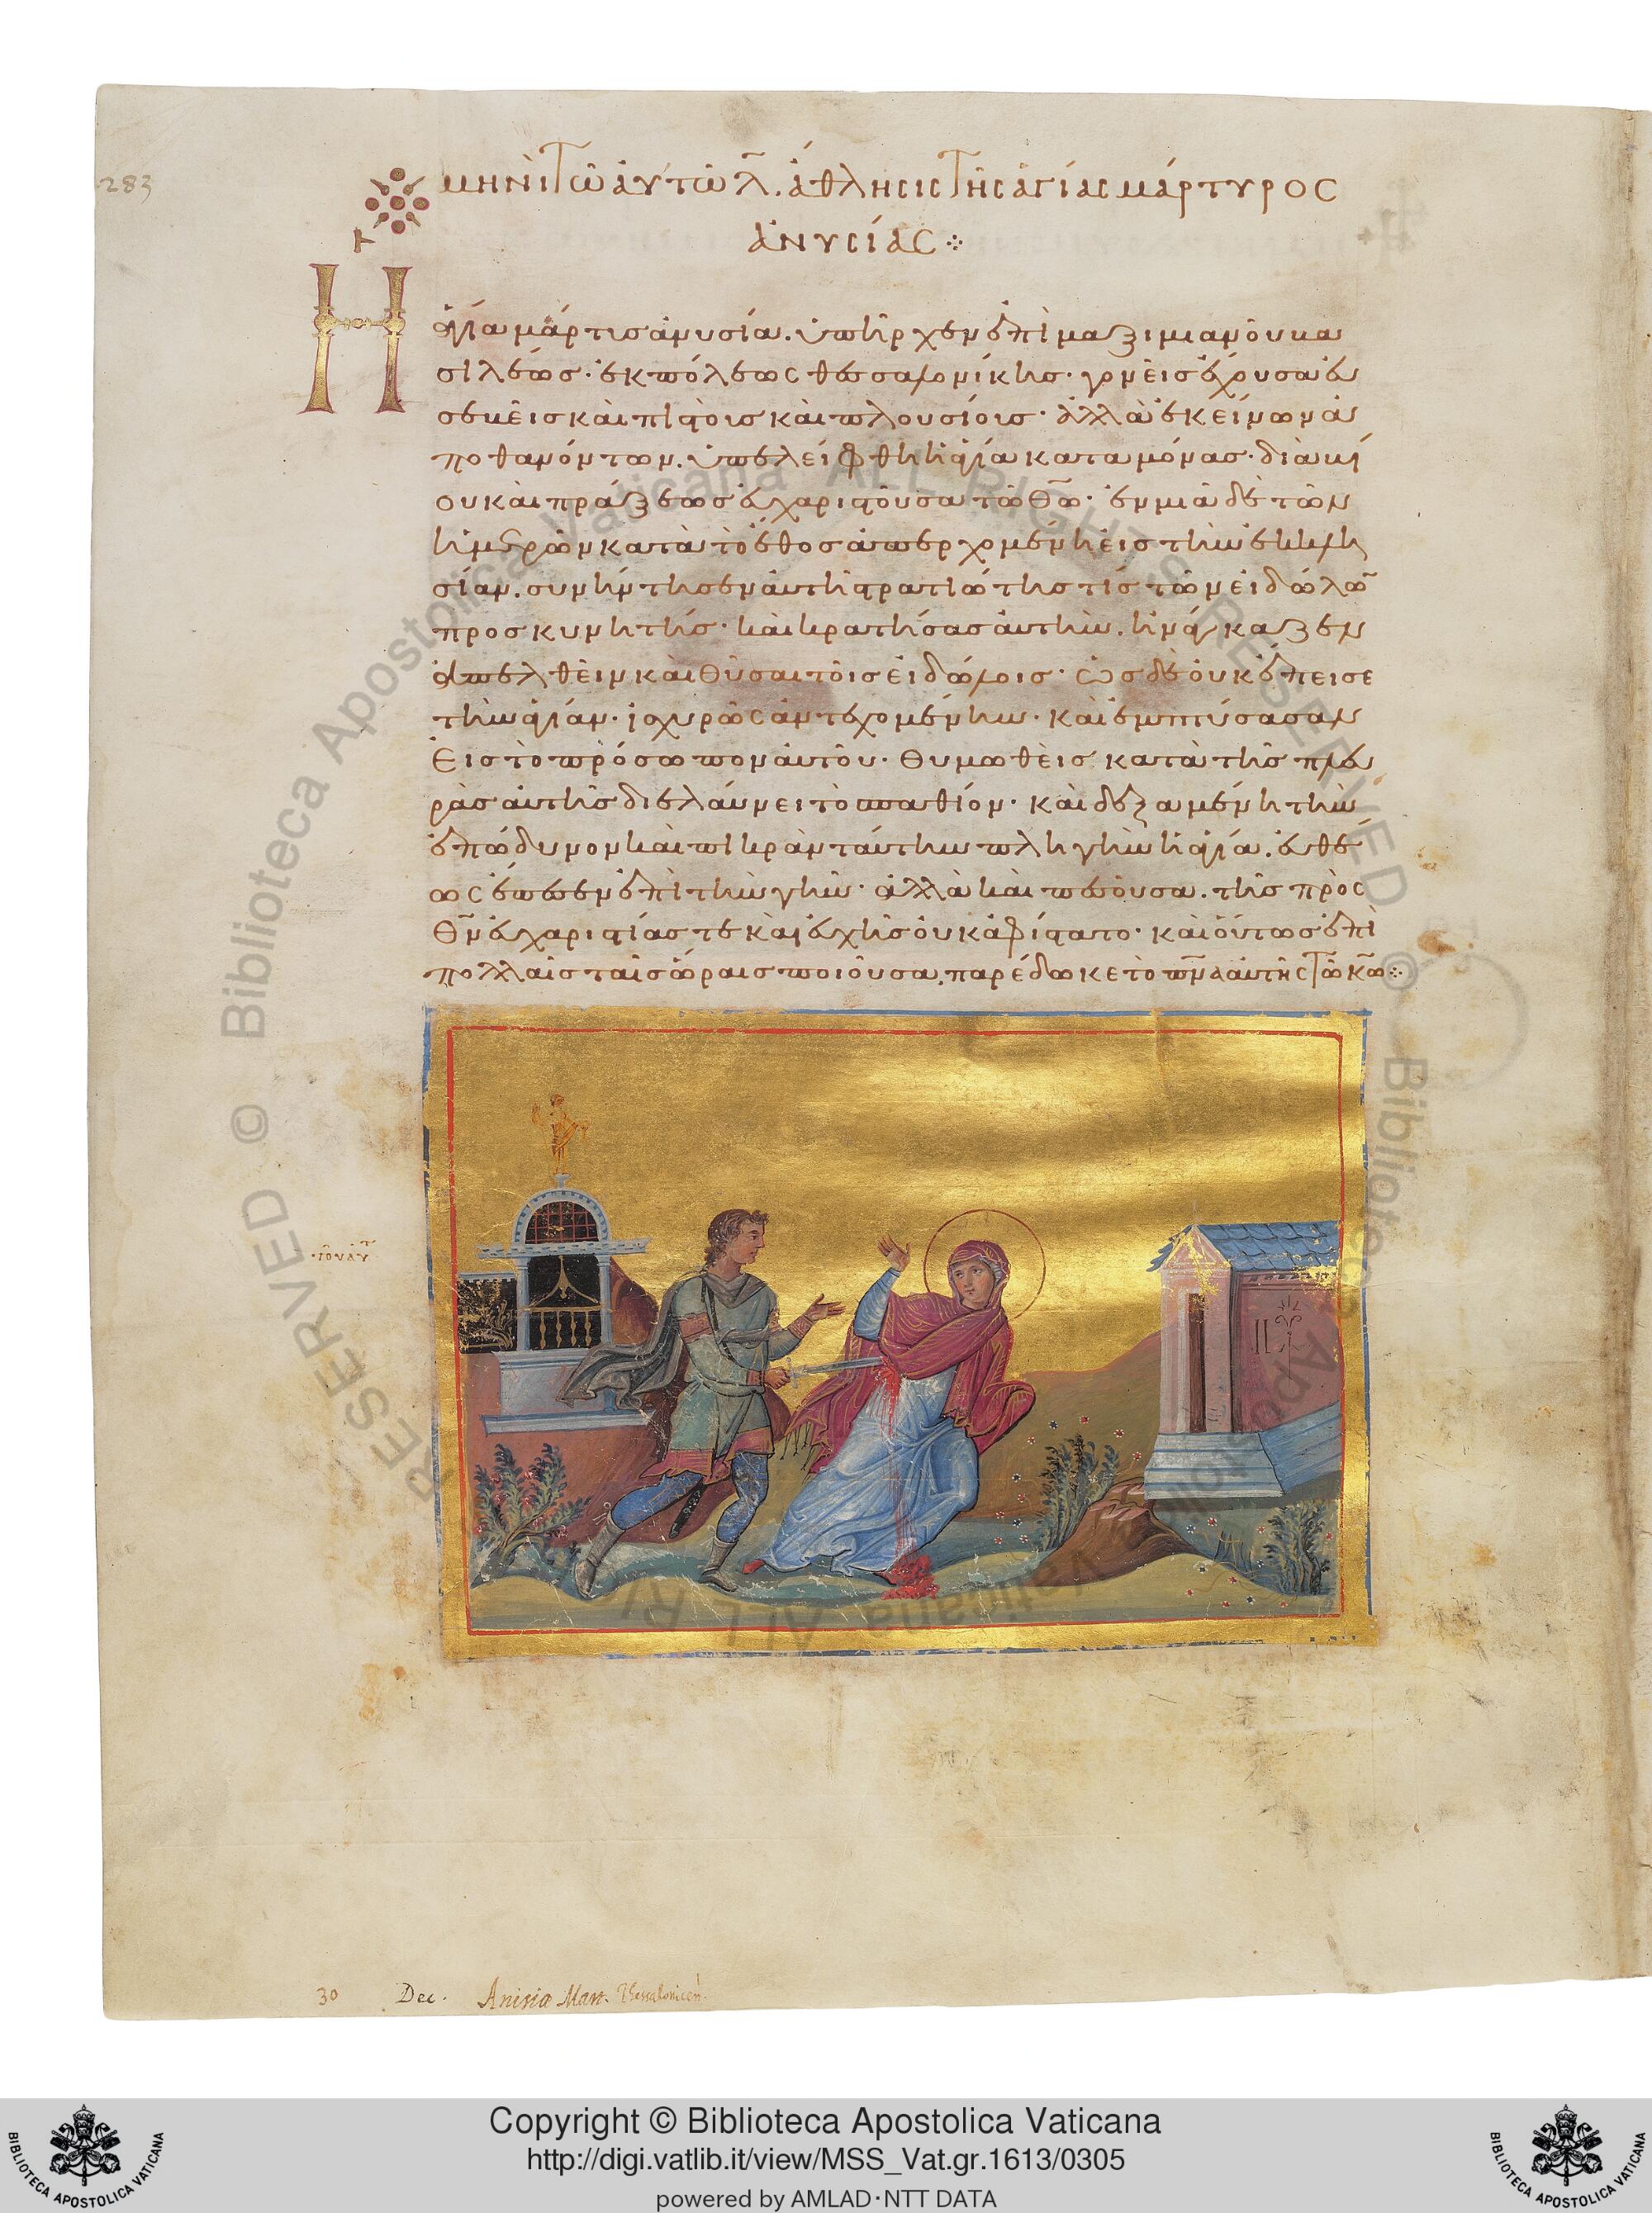 283
μηνὶ τῶ αὐτῶ λ̅. ἄθλησις τῆς ἁγίας μάρτυρος
ἀνυσίας ⁘
Η
ἁγία μάρτις ἀνυσία. ὑπῆρχεν ἐπὶ μαξιμιανοῦ βα
σιλέως· ἐκ πόλεως θεσσαλονίκης· γονεῖς ἔχουσα εὐ
σεβεῖς καὶ πιστοῖς καὶ πλουσίοις· ἀλλὰ ἐκείνων ἀ
ποθανόντων. ὑπελείφθη ἡ ἁγία καταμόνας· διὰ βί
ου καὶ πράξεως εὐχαριστοῦσα τῶ Θ̅ω̅· ἐν μιᾶ δὲ τῶν
ἡμερῶν κατὰ τὸ ἔθος ἀπερχομένη εἰς τὴν ἐκκλη
σίαν. συνήντησεν αὐτῆ στρατιώτης τίς τῶν εἰδώλω̅
προσκυνητής· καὶ κρατήσας αὐτὴν. ἠνάγκαζεν
ἀπελθεῖν καὶ θῦσαι τοῖς εἰδώλοις· ὡς δὲ οὐκ ἔπεισε
τὴν ἁγίαν· ἰσχυρῶς ἀντεχομένην· καὶ ἐμπτύσασαν
εἰς τὸ πρόσωπον αὐτοῦ· θυμωθεὶς κατὰ τῆς πλευ
ρᾶς αὐτῆς διελαύνει τὸ σπαθίον· καὶ δεξαμένη τὴν
ἐπώδυνον καὶ πικρὰν ταύτην πληγὴν ἡ ἁγία. εὐθέ
ως ἔπεσεν ἐπὶ τὴν γῆν· ἀλλὰ καὶ πεσοῦσα. τῆς πρὸς
Θ̅ν̅ εὐχαριστίας τε καὶ εὐχῆς οὐκ ἀφίστατο· καὶ οὕτως ἐπὶ
πολλαῖς ταῖς ὥραις ποιοῦσα. παρέδωκε τὸ π̅ν̅α̅ αὐτῆς τῶ κ̅ω̅ ⁘
30 Dec. Anisia Mart. Thessalonicen.
Copyright © Biblioteca Apostolica Vaticana
http://digi.vatlib.it/view/MSS_Vat.gr.1613/0305
powered by AMLAD·NTT DATA
BIBLIOTECA APOSTOLICA VATICANA
BIBLIOTECA APOSTOLICA VATICANA
Biblioteca Apostolica Vaticana ALL RIGHTS RESERVED © Biblioteca Apostolica Vaticana ALL RIGHTS RESERVED ©